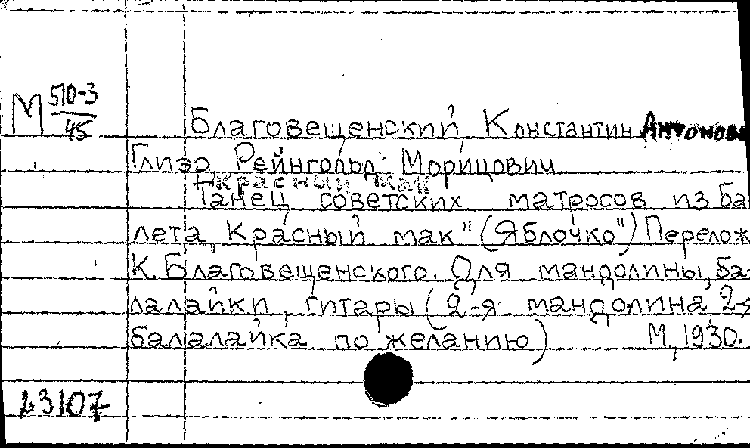 М 510-3
45
Благовещенский Константин Антонов
Глиэр Рейнгольд Морицович
Красный мак
Танец советских матросов из ба
лета „Красный мак" (Яблочко") Перелож
К. Благовещенского. Для мандолины, ба
лалайки, гитары (2-я мандолина 2-я
балалайка по желанию) М, 1930.
13107